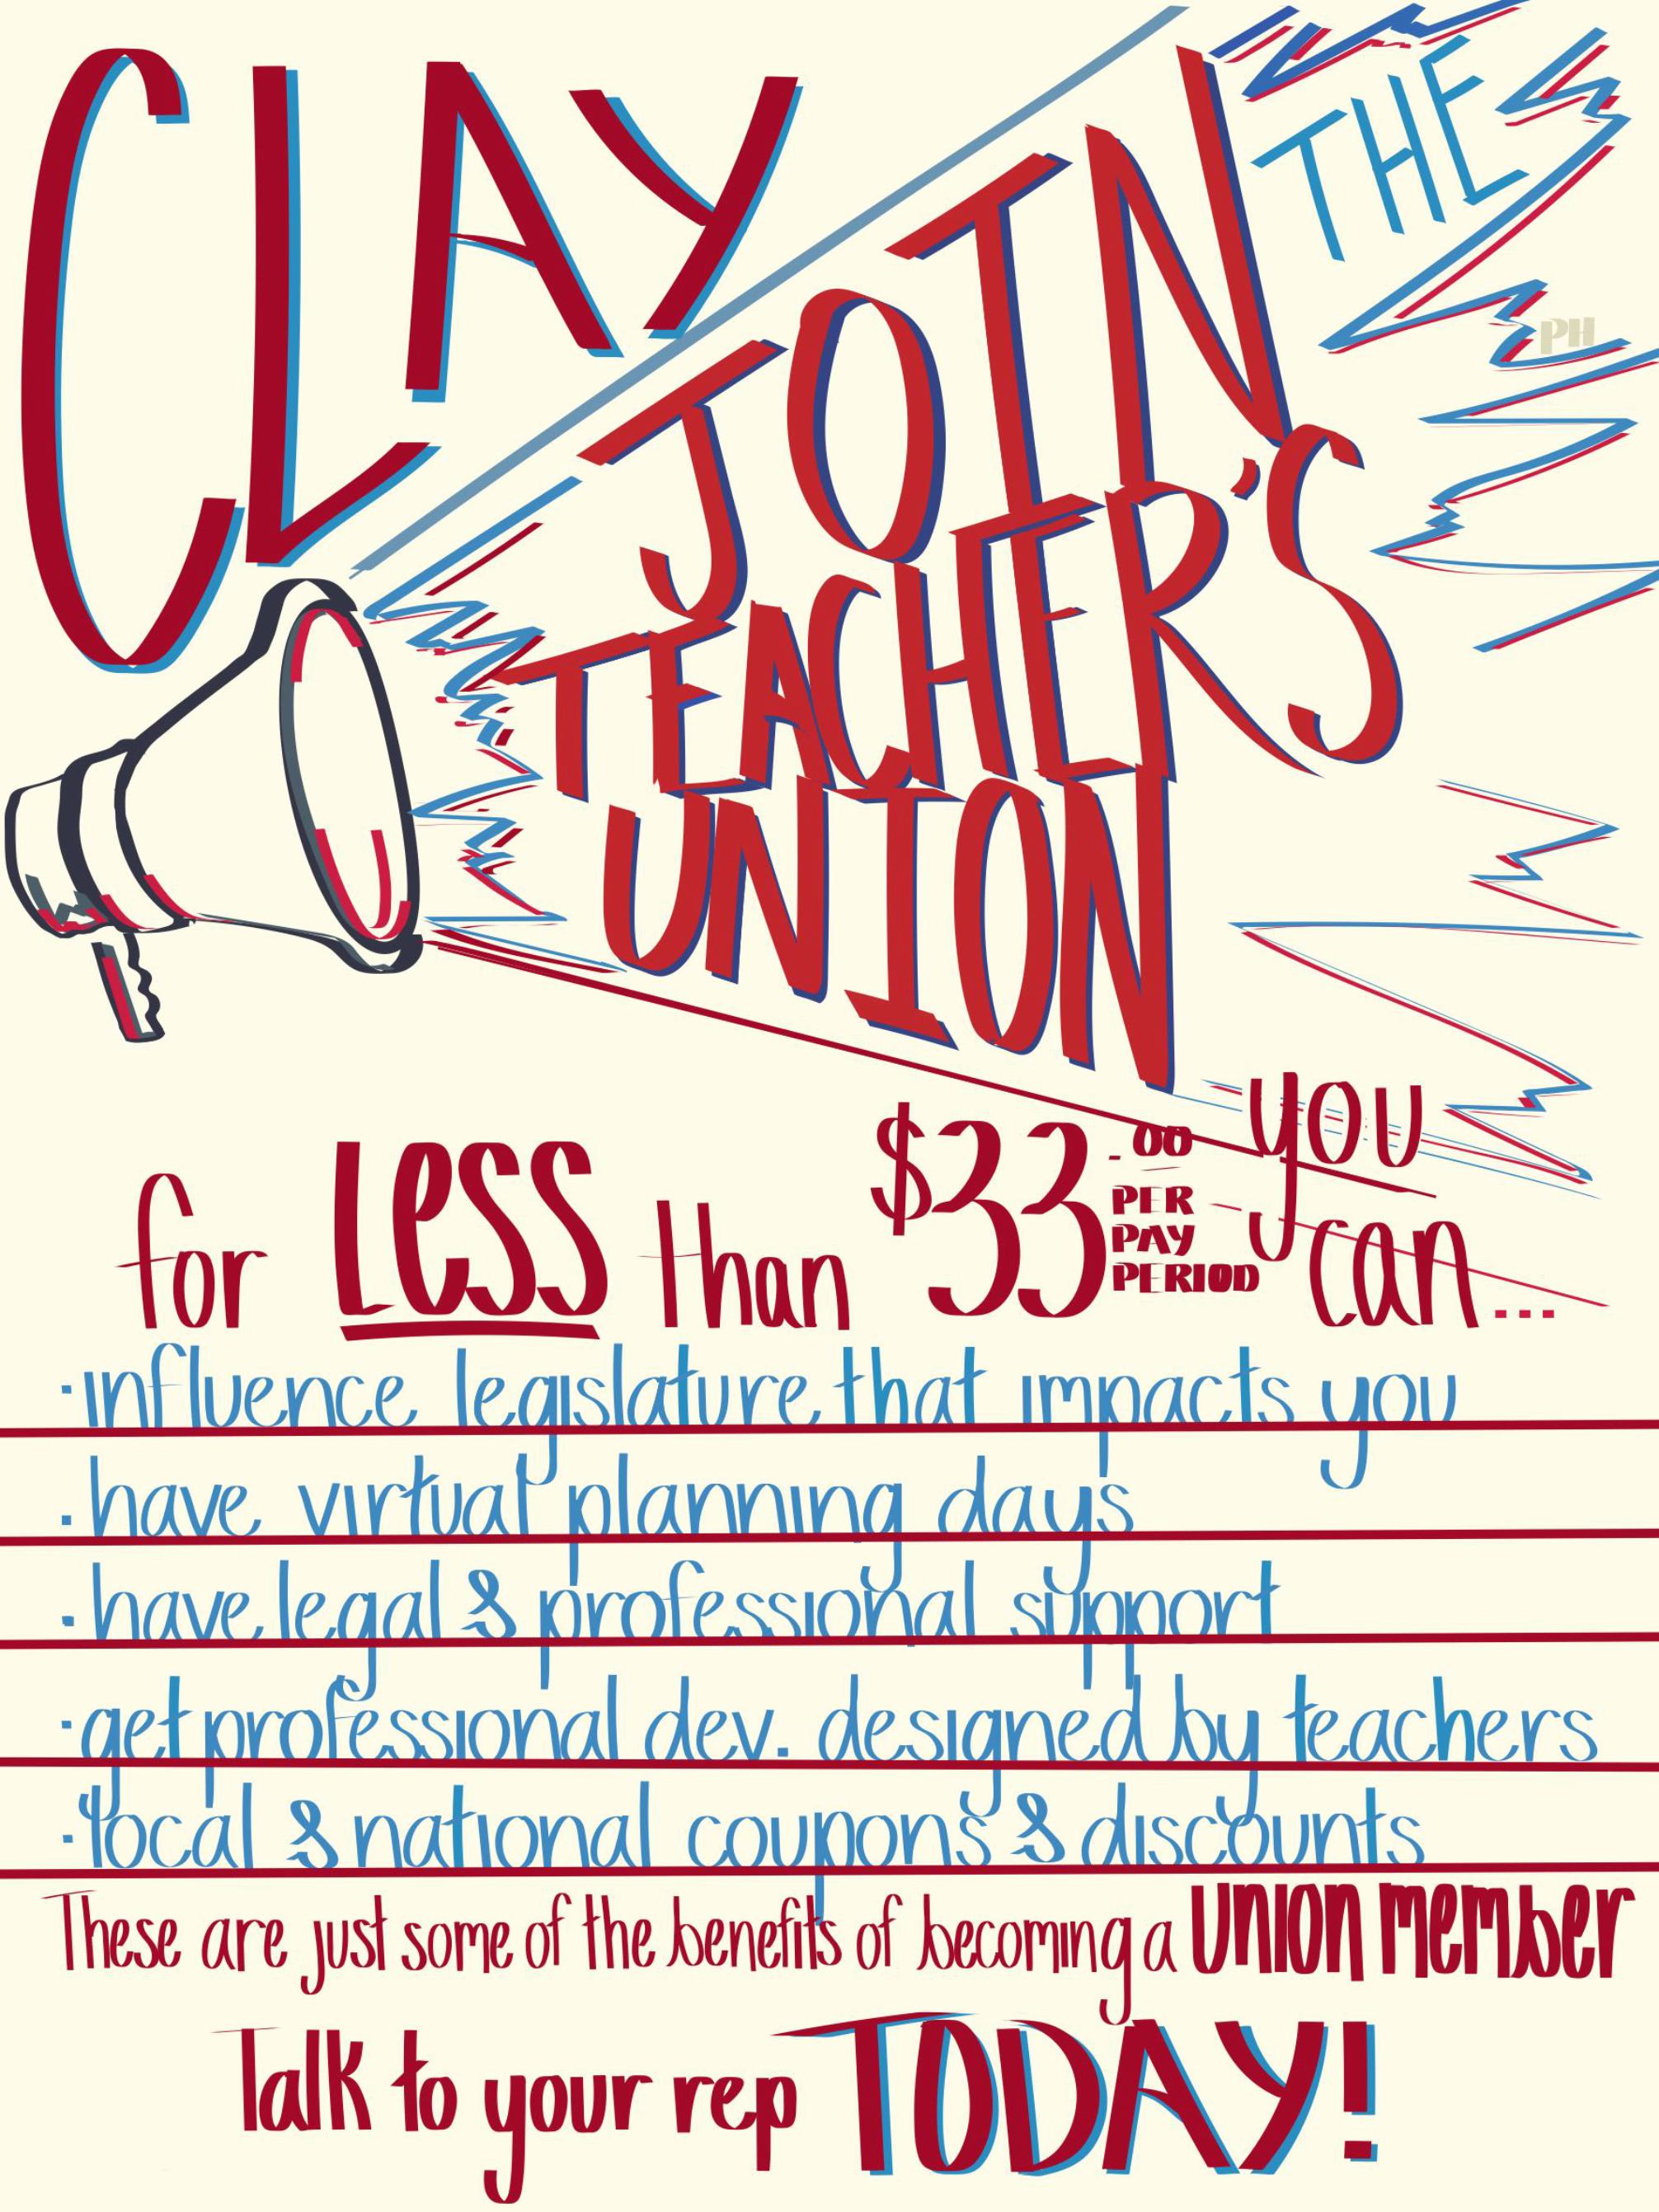 CLAY
JOIN THE
TEACHER'S
UNION
PH
for LESS than $33.00 PER PAY PERIOD you can...
· influence legislature that impacts you
· have virtual planning days
· have legal & professional support
· get professional dev. designed by teachers
· local & national coupons & discounts
These are just some of the benefits of becoming a union member
Talk to your rep TODAY!